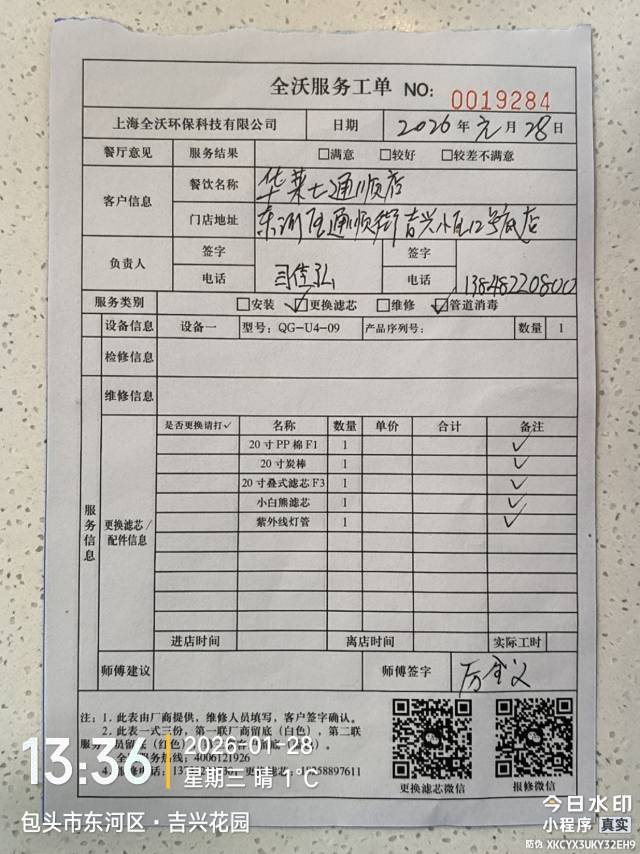 全沃服务工单 NO: 0019284
上海全沃环保科技有限公司 日期 2026年元月28日
餐厅意见 服务结果 □满意 □较好 □较差不满意
客户信息 餐饮名称 华莱士通顺店
门店地址 东河区通顺街吉兴小区12号底店
负责人 签字 签字
电话 电话 13848220800
服务类别 □安装 ☑更换滤芯 □维修 ☑管道消毒
设备信息 设备一 型号: QG-U4-09 产品序列号: 数量 1
检修信息
维修信息
服务信息
更换滤芯/配件信息
是否更换请打✓ 名称 数量 单价 合计 备注
20寸PP棉F1 1 ✓
20寸炭棒 1 ✓
20寸叠式滤芯F3 1 ✓
小白熊滤芯 1 ✓
紫外线灯管 1 ✓
进店时间 离店时间 实际工时
师傅建议 师傅签字
注: 1. 此表由厂商提供，维修人员填写，客户签字确认。
2. 此表一式三份，第一联厂商留底（白色），第二联
服务人员留底（红色）
4006121926
更换滤芯微信 报修微信
13:36
2026-01-28
星期三 晴 1℃
包头市东河区·吉兴花园
今日水印
小程序 真实
防伪 XKCYX3UKY32EH9